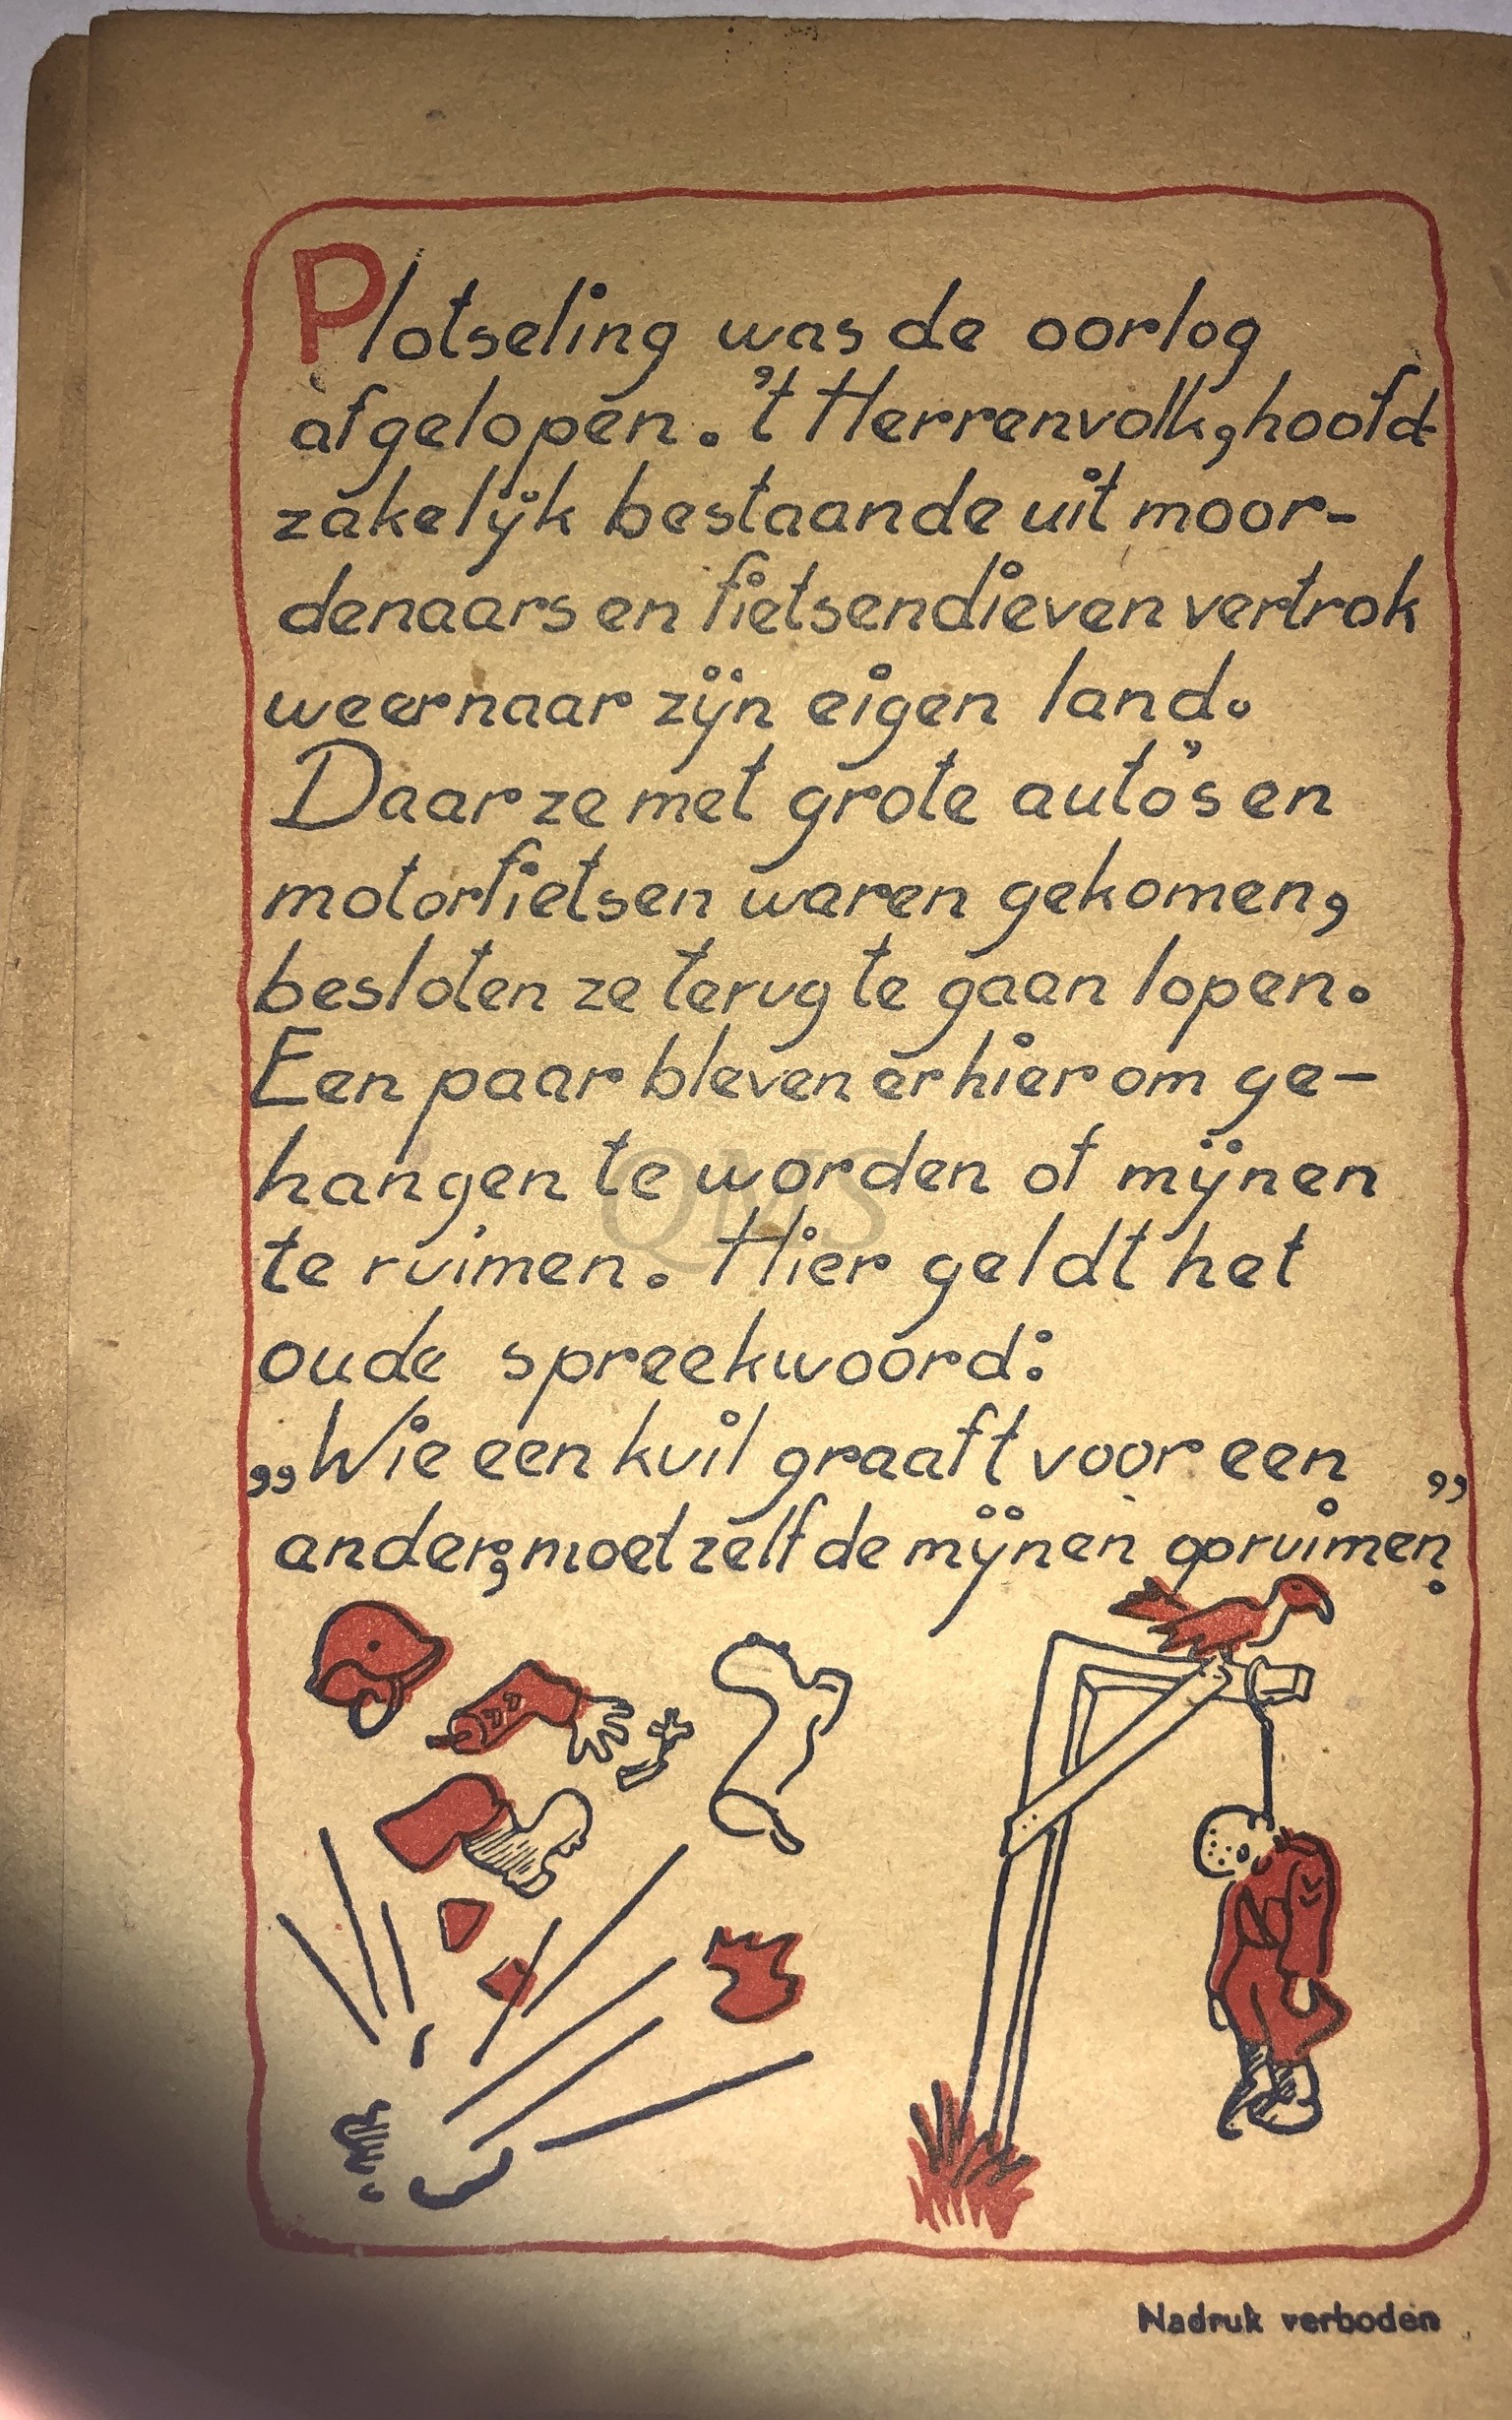 Plotseling was de oorlog
afgelopen. 't Herrenvolk, hoofd-
zakelijk bestaande uit moor-
denaars en fietsendieven vertrok
weer naar zijn eigen land.
Daar ze met grote auto's en
motorfietsen waren gekomen,
besloten ze terug te gaan lopen.
Een paar bleven er hier om ge-
hangen te worden of mijnen
te ruimen. Hier geldt het
oude spreekwoord:
„Wie een kuil graaft voor een
ander, moet zelf de mijnen opruimen."
QMS
Nadruk verboden